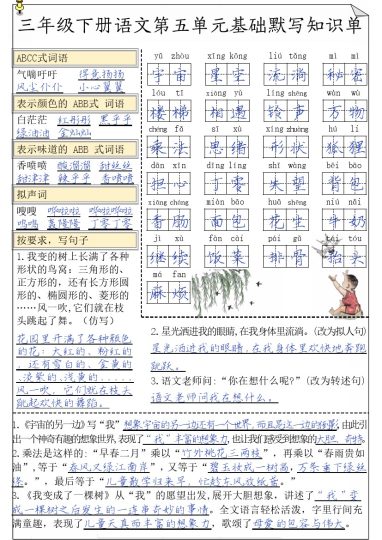 三年级下册语文第五单元基础默写知识单
ABCC式词语
气喘吁吁 得意扬扬
风尘仆仆 小心翼翼
表示颜色的 ABB式 词语
白茫茫 红彤彤 黑乎乎
绿油油 金灿灿
表示味道的 ABB 式词语
香喷喷 酸溜溜 甜丝丝
甜津津 辣乎乎 香喷喷
拟声词
嗖嗖 哗啦啦 哗啦啦
呜呜 轰隆隆 丁零丁零
按要求，写句子
1.我变的树上长满了各种
形状的鸟窝：三角形的、
正方形的，还有长方形圆
形的、椭圆形的、菱形的
……风一吹，它们就在枝
头跳起了舞。（仿写）
花园里开满了各种颜色
的花：大红的、粉红的
，还有雪白的、金黄的
、淡紫的、浅黄的……
风一吹，它们就在枝头
跳起欢快的舞蹈。
yǔ zhòu xīng kōng liú tǎng mì mì
宇宙 星空 流淌 秘密
lóu tī xiāng yù líng shēng wàn wù
楼梯 相遇 铃声 万物
chéng fǎ sī xù xíng zhuàng hú li
乘法 思绪 形状 狐狸
dān xīn dīng líng shī wàng bēi bāo
担心 丁零 失望 背包
xiāng cháng miàn bāo huā shēng niú nǎi
香肠 面包 花生 牛奶
jì xù fàn cài pái gǔ tái tóu
继续 饭菜 排骨 抬头
má fan
麻烦
2.星光洒进我的眼睛，在我身体里流淌。（改为拟人句）
星光洒进我的眼睛，在我身体里欢快地奔跑
跳跃。
3.语文老师问：“你在想什么呢？”（改为转述句）
语文老师问我在想什么。
1.《宇宙的另一边》写“我”想象宇宙的另一边还有一个世界，而且是这一边的倒影，由此引
出一个神奇有趣的想象世界，表现了“我”丰富的想象力，也让我们感受到想象的大胆、奇特。
2.乘法是这样的：“早春二月”乘以“竹外桃花三两枝”，再乘以“春雨贵如
油”，等于“春风又绿江南岸”，又等于“碧玉妆成一树高，万条垂下绿丝
绦。”，最后等于“儿童散学归来早，忙趁东风放纸鸢。”
3.《我变成了一棵树》从“我”的愿望出发，展开大胆想象，讲述了“我”变
成一棵树之后发生的一连串奇妙的事情。全文语言轻松活泼，字里行间充
满童趣，表现了儿童天真而丰富的想象力，歌颂了母爱的包容与伟大。